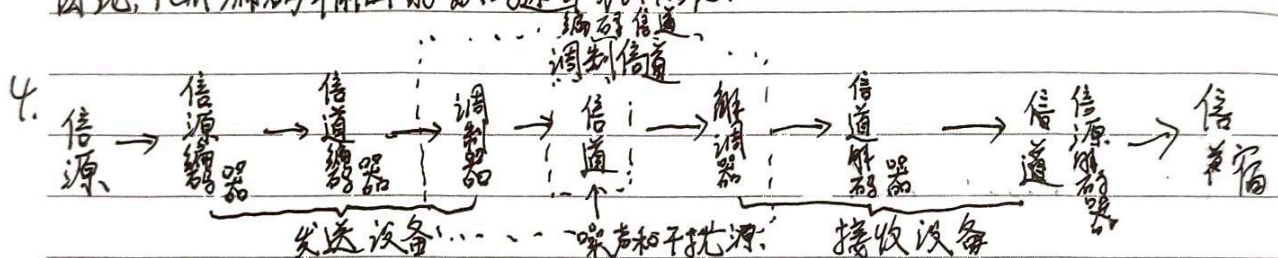 因此,
编码信道
调制信道
4. 信源 → 信源编码器 → 信道编码器 → 调制器 → 信道 → 解调器 → 信道解码器 → 信道 信源解码器 → 信宿
发送设备 噪声和干扰源 接收设备